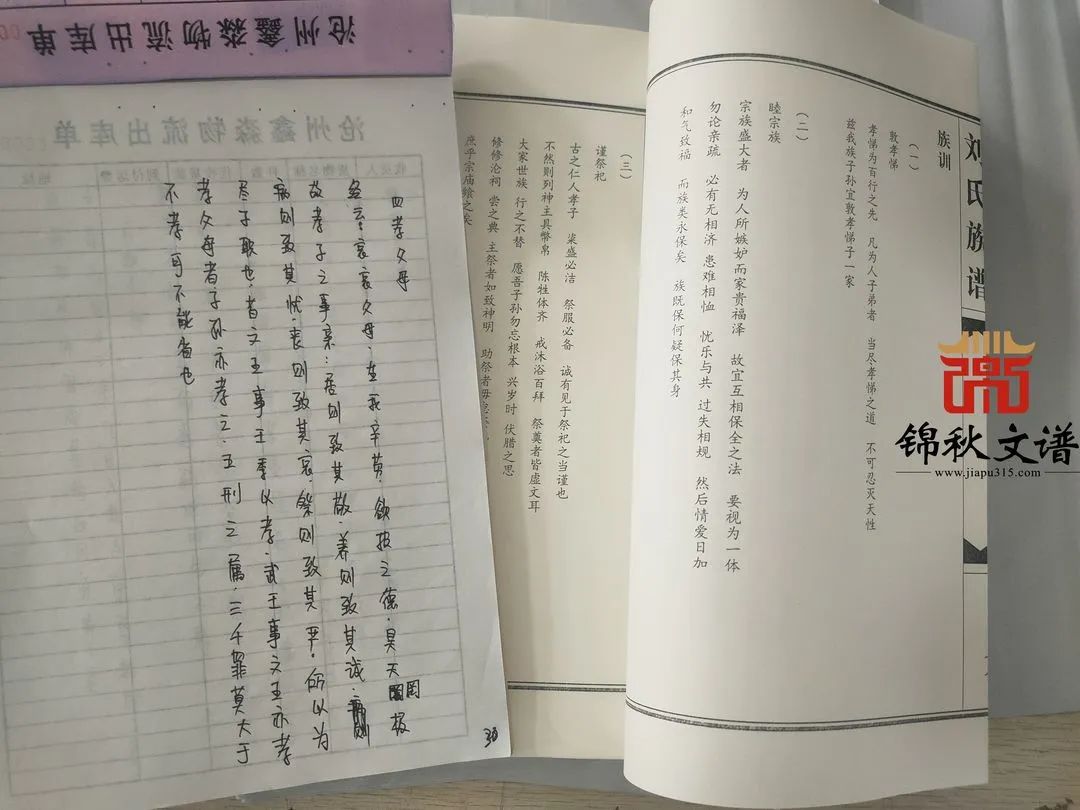 沧州鑫淼物流出库单
沧州鑫淼物流出库单
四孝父母
经云：哀哀父母，生我辛劳，欲报之德，昊天罔报
故孝子之事亲：居则致其敬，养则致其诚，
病则致其忧，丧则致其哀，祭则致其严，所以为
尽子职也，昔文王事王季以孝，武王事文王亦孝
孝父母者子孙亦孝之，五刑之属，三千罪莫大于
不孝，可不能省也
30
刘氏族谱
族训
（一）
敦孝悌
孝悌为百行之先 凡为人子弟者 当尽孝悌之道 不可忍灭天性
兹我族子孙宜敦孝悌子一家
（二）
睦宗族
宗族盛大者 为人所嫉妒而家贵福泽 故宜互相保全之法 要视为一体
勿论亲疏 必有无相济 患难相恤 忧乐与共 过失相规 然后情爱日加
和气致福 而族类永保矣 族既保何疑保其身
（三）
谨祭祀
古之仁人孝子 粢盛必洁 祭服必备 诚有见于祭祀之当谨也
不然则列神主具幣帛 陈牲体齐 戒沐浴百拜 祭奠者皆虚文耳
大家世族 行之不替 愿吾子孙勿忘根本 兴岁时 伏腊之思
修修沦祠 尝之典 主祭者如致神明 助祭者毋
庶乎宗庙飨之矣
锦秋文谱
www.jiapu315.com